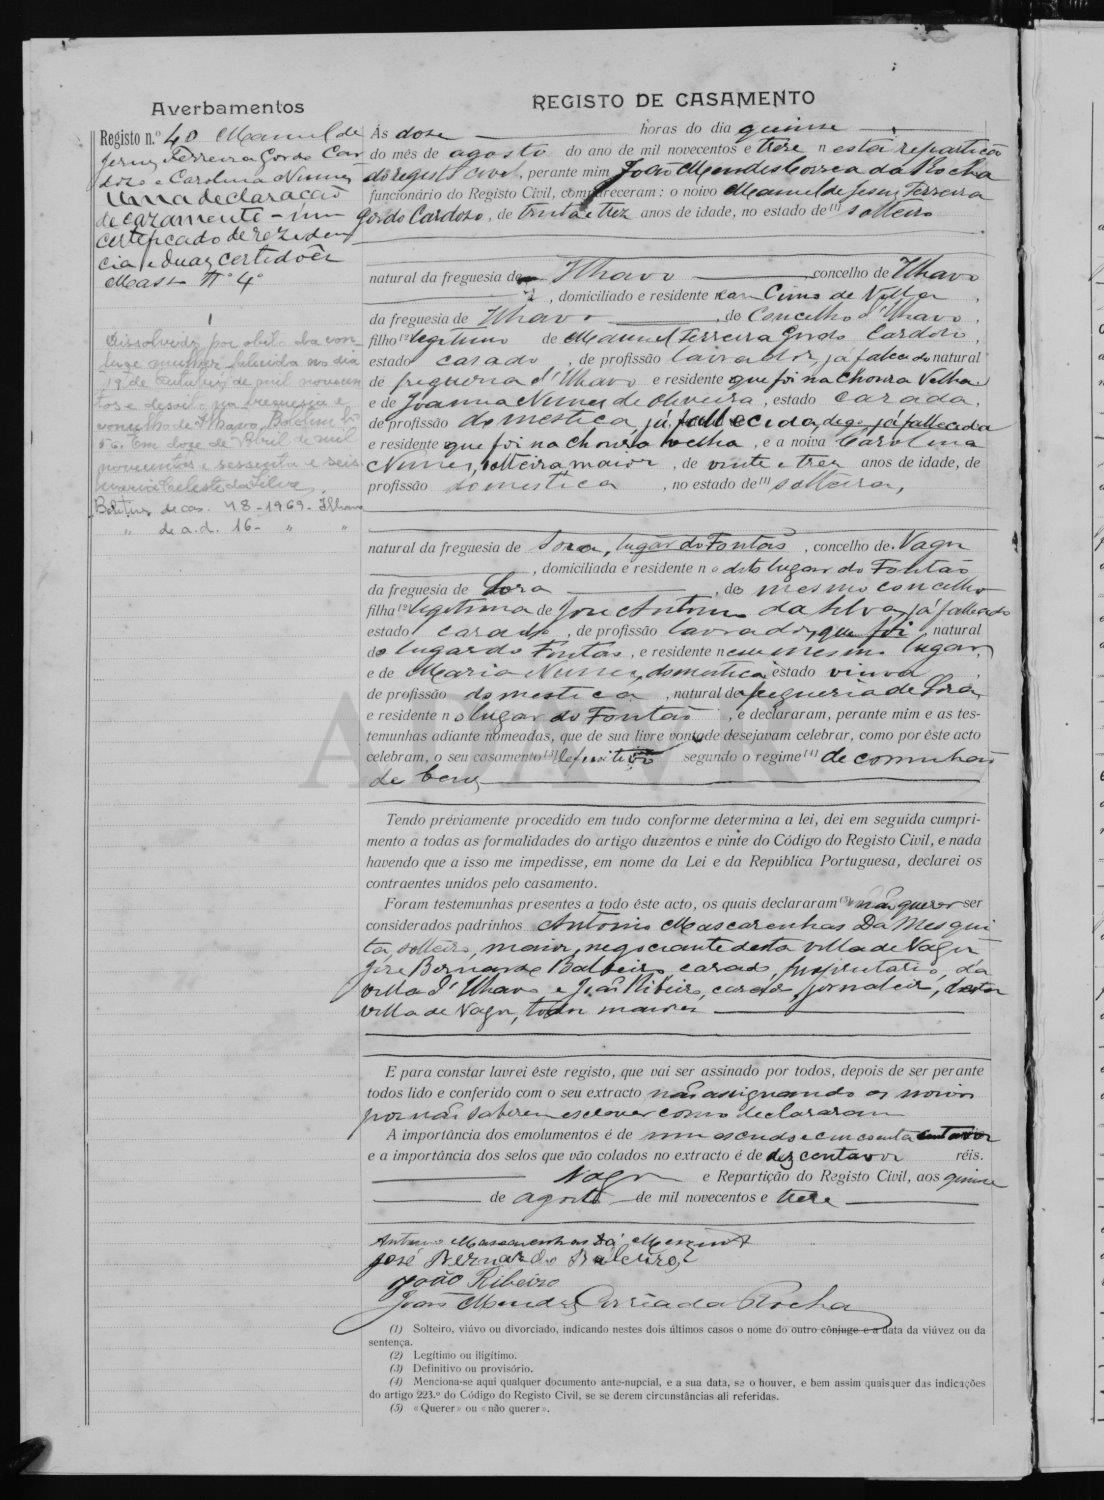 Averbamentos
Registo n.º 40 Manuel de
Jesus Ferreira Gordo Car
dozo e Carolina Nunes
Uma declaração
de cazamento - um
certificado de reziden
cia e duas certidões
Masso Nº 4º
1
Dissolvido por obito da con-
juge mulher falecida no dia
19 de outubro de mil novecen
tos e desoito na freguesia e
concelho de Ilhavo, Boletim nº
56. Em doze de Abril de mil
novecentos e sessenta e seis
Maria Celeste da Silva
Boletim de cas. 48-1969-Ilhavo
" de a.d. 16- " "
REGISTO DE CASAMENTO
Ás doze horas do dia quinze
do mês de agosto do ano de mil novecentos e treze n esta repartição
do registo civil, perante mim João Mendes Correa da Rocha
funcionário do Registo Civil, compareceram: o noivo Manuel de Jesus Ferreira
Gordo Cardozo, de trinta e trez anos de idade, no estado de (1) solteiro
natural da freguesia de Ilhavo concelho de Ilhavo
, domiciliado e residente em Cimo de Villa,
da freguesia de Ilhavo, do Concelho d'Ilhavo,
filho (2) legitimo de Manuel Ferreira Gordo Cardozo,
estado casado, de profissão lavrador, já falecido natural
de freguezia d'Ilhavo e residente que foi na Chouza Velha
e de Joanna Nunes de Oliveira, estado casada,
de profissão domestica, já fallecida, digo já fallecida
e residente que foi na Chouza velha, e a noiva Carolina
Nunes, solteira maior, de vinte e trez anos de idade, de
profissão domestica, no estado de (1) solteira,
natural da freguesia de Soza, lugar do Fontão, concelho de Vagos
, domiciliada e residente n o dito lugar do Fontão
da freguesia de Soza, do mesmo concelho
filha (2) legitima de José Antonio da Silva, já fallecido
estado casado, de profissão lavrador, que foi, natural
do lugar do Fontão, e residente n esse mesmo lugar,
e de Maria Nunes, domestica, estado viuva
de profissão domestica, natural da freguezia de Soza,
e residente n o lugar do Fontão, e declararam, perante mim e as tes-
temunhas adiante nomeadas, que de sua livre vontade desejavam celebrar, como por êste acto
celebram, o seu casamento (3) definitivo segundo o regime (4) de comunhão
de bens
Tendo préviamente procedido em tudo conforme determina a lei, dei em seguida cumpri-
mento a todas as formalidades do artigo duzentos e vinte do Código do Registo Civil, e nada
havendo que a isso me impedisse, em nome da Lei e da República Portuguesa, declarei os
contraentes unidos pelo casamento.
Foram testemunhas presentes a todo êste acto, os quais declararam (5) não querer ser
considerados padrinhos Antonio Mascarenhas Da Mesqui
ta, solteiro, maior, negociante desta villa de Vagos
José Bernardo Balseiro, casado, proprietario, da
villa d'Ilhavo e João Ribeiro, casado, jornaleiro, desta
villa de Vagos, todos maiores
E para constar lavrei êste registo, que vai ser assinado por todos, depois de ser perante
todos lido e conferido com o seu extracto não assignando os noivos
por não saberem escrever como declararam
A importância dos emolumentos é de um escudo e cincoenta centavos
e a importância dos selos que vão colados no extracto é de dez centavos réis.
Vagos e Repartição do Registo Civil, aos quinze
de agosto de mil novecentos e treze
Antonio Mascarenhas Da Mesquita
José Bernardo Balseiro
João Ribeiro
João Mendes Correia da Rocha
(1) Solteiro, viúvo ou divorciado, indicando nestes dois últimos casos o nome do outro cônjuge e a data da viúvez ou da
sentença.
(2) Legítimo ou iligítimo.
(3) Definitivo ou provisório.
(4) Menciona-se aqui qualquer documento ante-nupcial, e a sua data, se o houver, e bem assim quaisquer das indicações
do artigo 223.º do Código do Registo Civil, se se derem circunstâncias ali referidas.
(5) «Querer» ou «não querer».
ADAVR